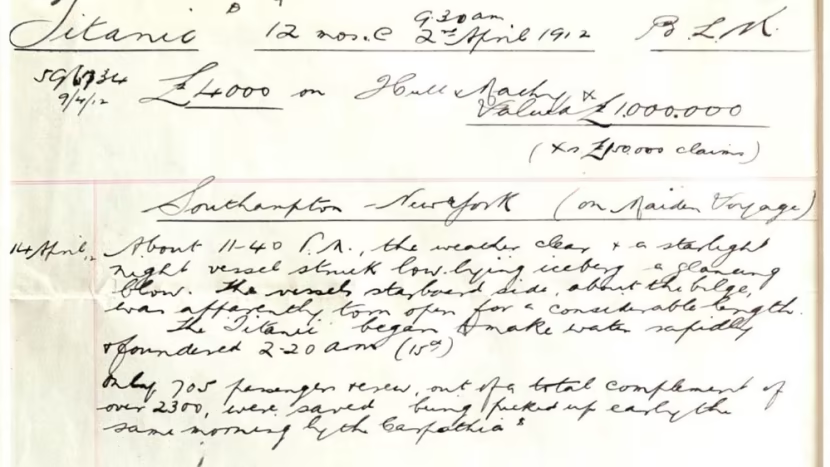 Titanic 12 mos. C 9.30 am 2nd April 1912 B. L. K.
9/4/12 £4000 on Hull & Machy Valued £1.000.000
(xs £150.000 claims)
Southampton - New York (on Maiden Voyage)
14 April 12 About 11-40 P.M., the weather clear & a starlight
night vessel struck low-lying iceberg a glancing
blow. The vessels starboard side, about the bilge,
was apparently torn open for a considerable length.
The "Titanic" began to make water rapidly
& foundered 2-20 am (15th)
Only 705 passengers & crew, out of a total complement of
over 2300, were saved being picked up early the
same morning by the Carpathia